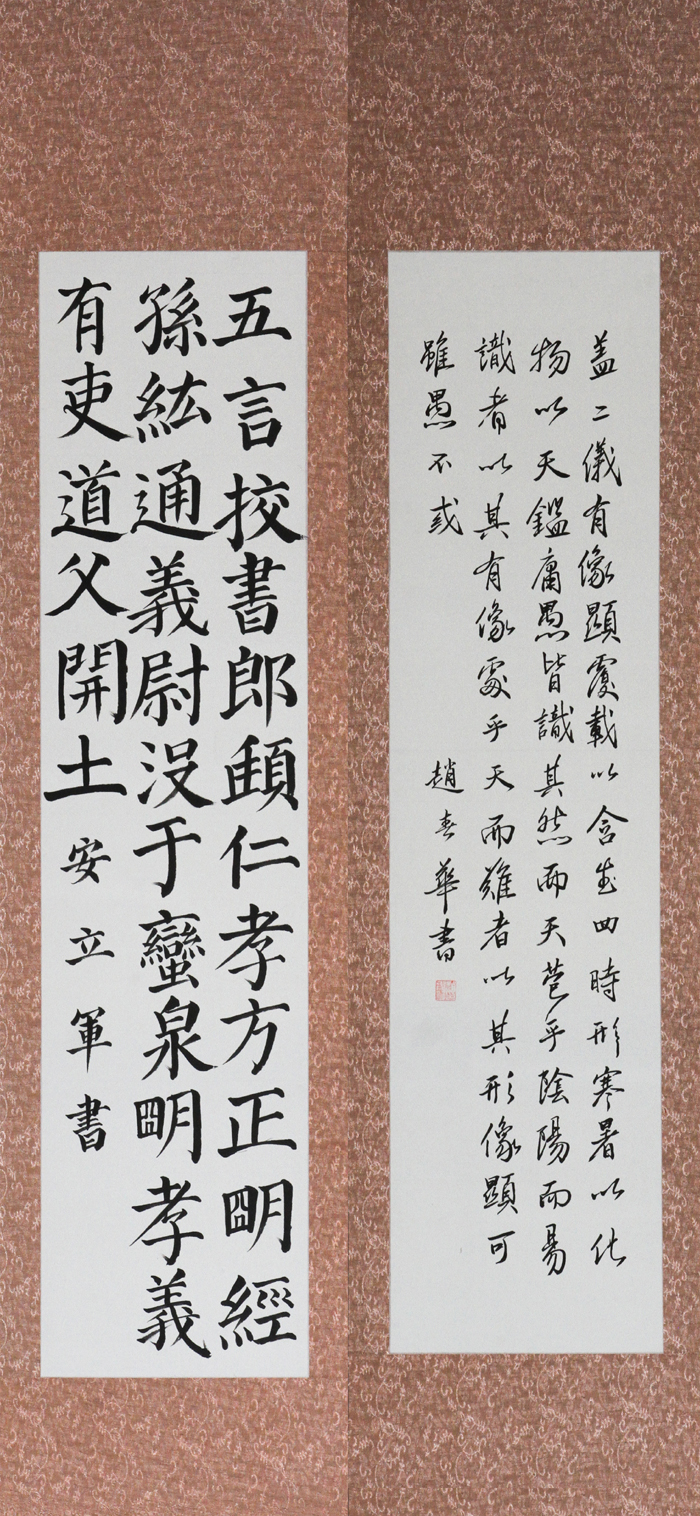 盖二儀有像顯覆載以含生四時形寒暑以化
物以天鑑庸愚皆識其然而天苞乎陰陽而易
識者以其有像處乎天而難者以其形像顯可
雖愚不或
趙春華書
五言挍書郎仁孝方正明經
孫紘通義尉没于蠻泉明孝義
有吏道父開土
安立軍書